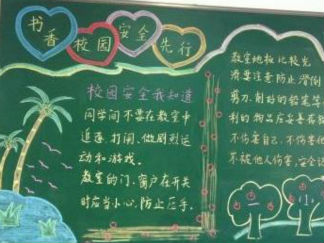 书香校园 安全先行
校园安全我知道
同学间不要在教室中
追逐、打闹、做剧烈运
动和游戏。
教室的门、窗户在开关
时应当小心,防止压手。
教室地板比较光
滑要注意防止滑倒
剪刀、削好的铅笔等
利的物品应妥善
不伤害自己,不伤害他
不被他人伤害,安全